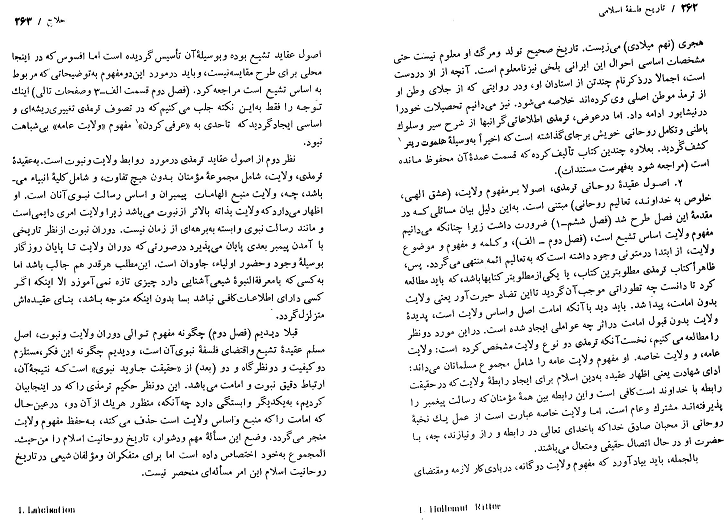 ۲۶۲ / تاریخ فلسفهٔ اسلامی
هجری (نهم میلادی) می‌زیست. تاریخ صحیح تولد ومرگ او معلوم نیست حتی
مشخصات اساسی احوال این ایرانی بلخی نیزنامعلوم است. آنچه از او دردست
است، اجمالا درذکرنام چندتن از استادان او، ودر روایتی که از جلای وطن او
از ترمذ موطن اصلی وی کرده‌اند خلاصه می‌شود. نیز می‌دانیم تحصیلات خودرا
درنیشاپور ادامه داد. اما درعوض، ترمذی اطلاعاتی گرانبها از شرح سیر وسلوك
باطنی وتکامل روحانی خویش برجای‌گذاشته است که اخیراً به‌وسیلهٔ هلموت ریتر ۱
کشف‌گردید. بعلاوه چندین کتاب تألیف‌کرده که قسمت عمدهٔ آن محفوظ مانده
است (مراجعه شود به‌فهرست مستندات).
۲. اصول عقیدهٔ روحانی ترمذی، اصولا برمفهوم ولایت، (عشق الهی،
خلوص به خداوند، تعالیم روحانی) مبتنی است. به‌این دلیل بیان مسائلی که در
مقدمهٔ این فصل طرح شد (فصل ششم-۱) ضرورت داشت زیرا چنانکه می‌دانیم
مفهوم ولایت اساس تشیع است، (فصل دوم - الف)، وکلمه و مفهوم و موضوع
ولایت، از ابتدا درمتونی وجود داشته است که به‌تعالیم ائمه منتهی می‌گردد. پس،
ظاهراً کتاب ترمذی مطلوبترین کتاب، یا یکی ازمطلوبتر کتابهاباشد، که باید مطالعه
کرد تا دانست چه تطوراتی موجب‌آن‌گردید تااین تضاد حیرت‌آور یعنی ولایت
بدون امامت، پیدا شد. باید دید باآنکه امامت اصل واساس ولایت است، پدیدهٔ
ولایت بدون قبول امامت دراثر چه عواملی ایجاد شده است. دراین مورد دونظر
را مطالعه می‌کنیم، نخست‌آنکه ترمذی دو نوع ولایت مشخص کرده است: ولایت
عامه، و ولایت خاصه. او مفهوم ولایت عامه را شامل مجموع مسلمانان می‌داند:
ادای شهادت یعنی اظهار عقیده به‌دین اسلام برای ایجاد رابطهٔ ولایت‌که درحقیقت
رابطه با خداوند است‌کافی است و این رابطه بین همهٔ مؤمنان‌که رسالت پیغمبر را
پذیرفته‌اند مشترك وعام است. اما ولایت خاصه عبارت است از عمل یك نخبهٔ
روحانی از محبان صادق خداکه باخدای تعالی در رابطه و راز ونیازند، چه، با
حضرت او در حال اتصال حقیقی ومتعال می‌باشند.
بالجمله، باید بیادآورد که مفهوم ولایت دوگانه، دربادی‌کار لازمه ومقتضای
1. Hellemut Ritter
حلاج / ۲۶۳
اصول عقاید تشیع بوده وبوسیلهٔ‌آن تأسیس گردیده است اما افسوس که در اینجا
محلی برای طرح مقایسه‌نیست، وباید درمورد این‌دومفهوم به‌توضیحاتی که مربوط
به اساس تشیع است مراجعه‌کرد. (فصل دوم قسمت الف-۳ وصفحات تالی) اینك
توجه را فقط به‌این نکته جلب می‌کنیم‌که در تصوف ترمذی تغییری‌ریشه‌ای و
اساسی ایجادگردیدکه تاحدی به «عرفی‌کردن»۱ مفهوم «ولایت عامه» بی‌شباهت
نبود.
نظر دوم از اصول عقاید ترمذی درمورد روابط ولایت ونبوت است. به‌عقیدهٔ
ترمذی، ولایت، شامل مجموعهٔ مؤمنان بدون هیچ تفاوت، و شامل کلیهٔ انبیاء می‌-
باشد، چه، ولایت منبع الهامات پیمبران و اساس رسالت نبوی‌آنان است. او
اظهار می‌داردکه ولایت بذاته بالاتر ازنبوت می‌باشد زیرا ولایت امری دایمی‌است
و مانند رسالت نبوی وابسته به‌برهه‌ای از زمان نیست. دوران نبوت ازنظر تاریخی
با آمدن پیمبر بعدی پایان می‌پذیرد درصورتی که دوران ولایت تا پایان روزگار
بوسیلهٔ وجود وحضور اولیاء، جاودان است. این‌مطلب هرقدر هم جالب باشد اما
به‌کسی که بامعرفةالنبوة شیعی‌آشنایی دارد چیزی تازه نمی‌آموزد الا اینکه اگر
کسی دارای اطلاعات‌کافی نباشد بسا بدون اینکه متوجه باشد، بنای عقیده‌اش
متزلزل‌گردد.
قبلا دیدیم (فصل دوم) چگونه مفهوم توالی دوران ولایت ونبوت، اصل
مسلم عقیدهٔ تشیع واقتضای فلسفهٔ نبوی‌آن است، ودیدیم چگونه این فکر،مستلزم
دوکیفیت و دونظرگاه و دو (بعد) از «حقیقت جاوید نبوی» است‌که نتیجهٔ‌آن،
ارتباط دقیق نبوت و امامت می‌باشد. این دونظر حکیم ترمذی‌راکه دراینجابیان
کردیم، به‌یکدیگر وابستگی دارد چه‌آنکه، منظور هریك ازآن دو، درعین‌حال
که امامت را که منبع واساس ولایت است حذف می‌کند، به‌حفظ مفهوم ولایت
منجر می‌گردد. وضع این مسألهٔ مهم ودشوار، تاریخ روحانیت اسلام را من‌حیث‌
المجموع به‌خود اختصاص داده است اما برای متفکران ومؤلفان شیعی درتاریخ
روحانیت اسلام این امر مسأله‌ای منحصر نیست.
1. Laicisation